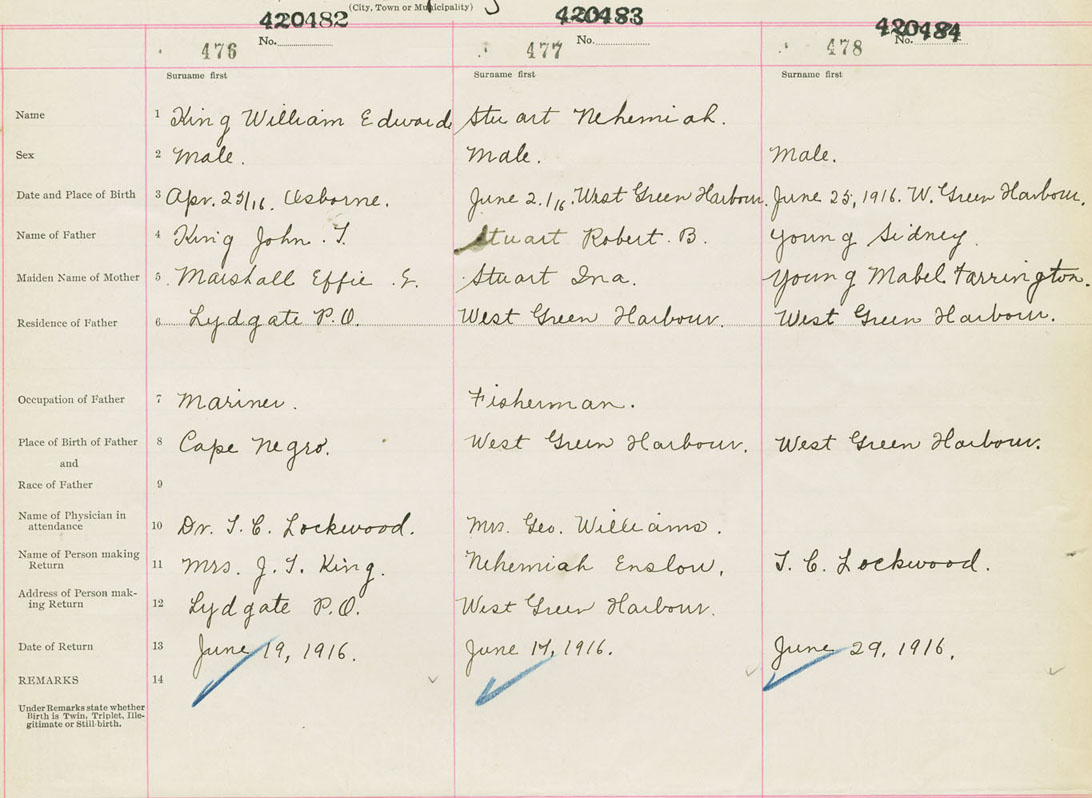 (City, Town or Municipality)
420482 420483 420484
476 No. 477 No. 478 No.
Surname first Surname first Surname first
Name 1 King William Edward Stuart Nehemiah.
Sex 2 Male. Male. Male.
Date and Place of Birth 3 Apr. 25/16. Osborne. June 2./16. West Green Harbour. June 25, 1916. W. Green Harbour.
Name of Father 4 King John . T. Stuart Robert. B. Young Sidney.
Maiden Name of Mother 5 Marshall Effie . E. Stuart Ina. Young Mabel Farrington.
Residence of Father 6 Lydgate P.O. West Green Harbour. West Green Harbour.
Occupation of Father 7 Mariner. Fisherman.
Place of Birth of Father 8 Cape Negro. West Green Harbour. West Green Harbour.
and
Race of Father 9
Name of Physician in
attendance 10 Dr. T. C. Lockwood. Mrs. Geo. Williams.
Name of Person making
Return 11 Mrs. J. T. King. Nehemiah Enslow. T. C. Lockwood.
Address of Person mak-
ing Return 12 Lydgate P.O. West Green Harbour.
Date of Return 13 June 19, 1916. June 17, 1916. June 29, 1916.
REMARKS 14
Under Remarks state whether
Birth is Twin, Triplet, Ille-
gitimate or Still-birth.